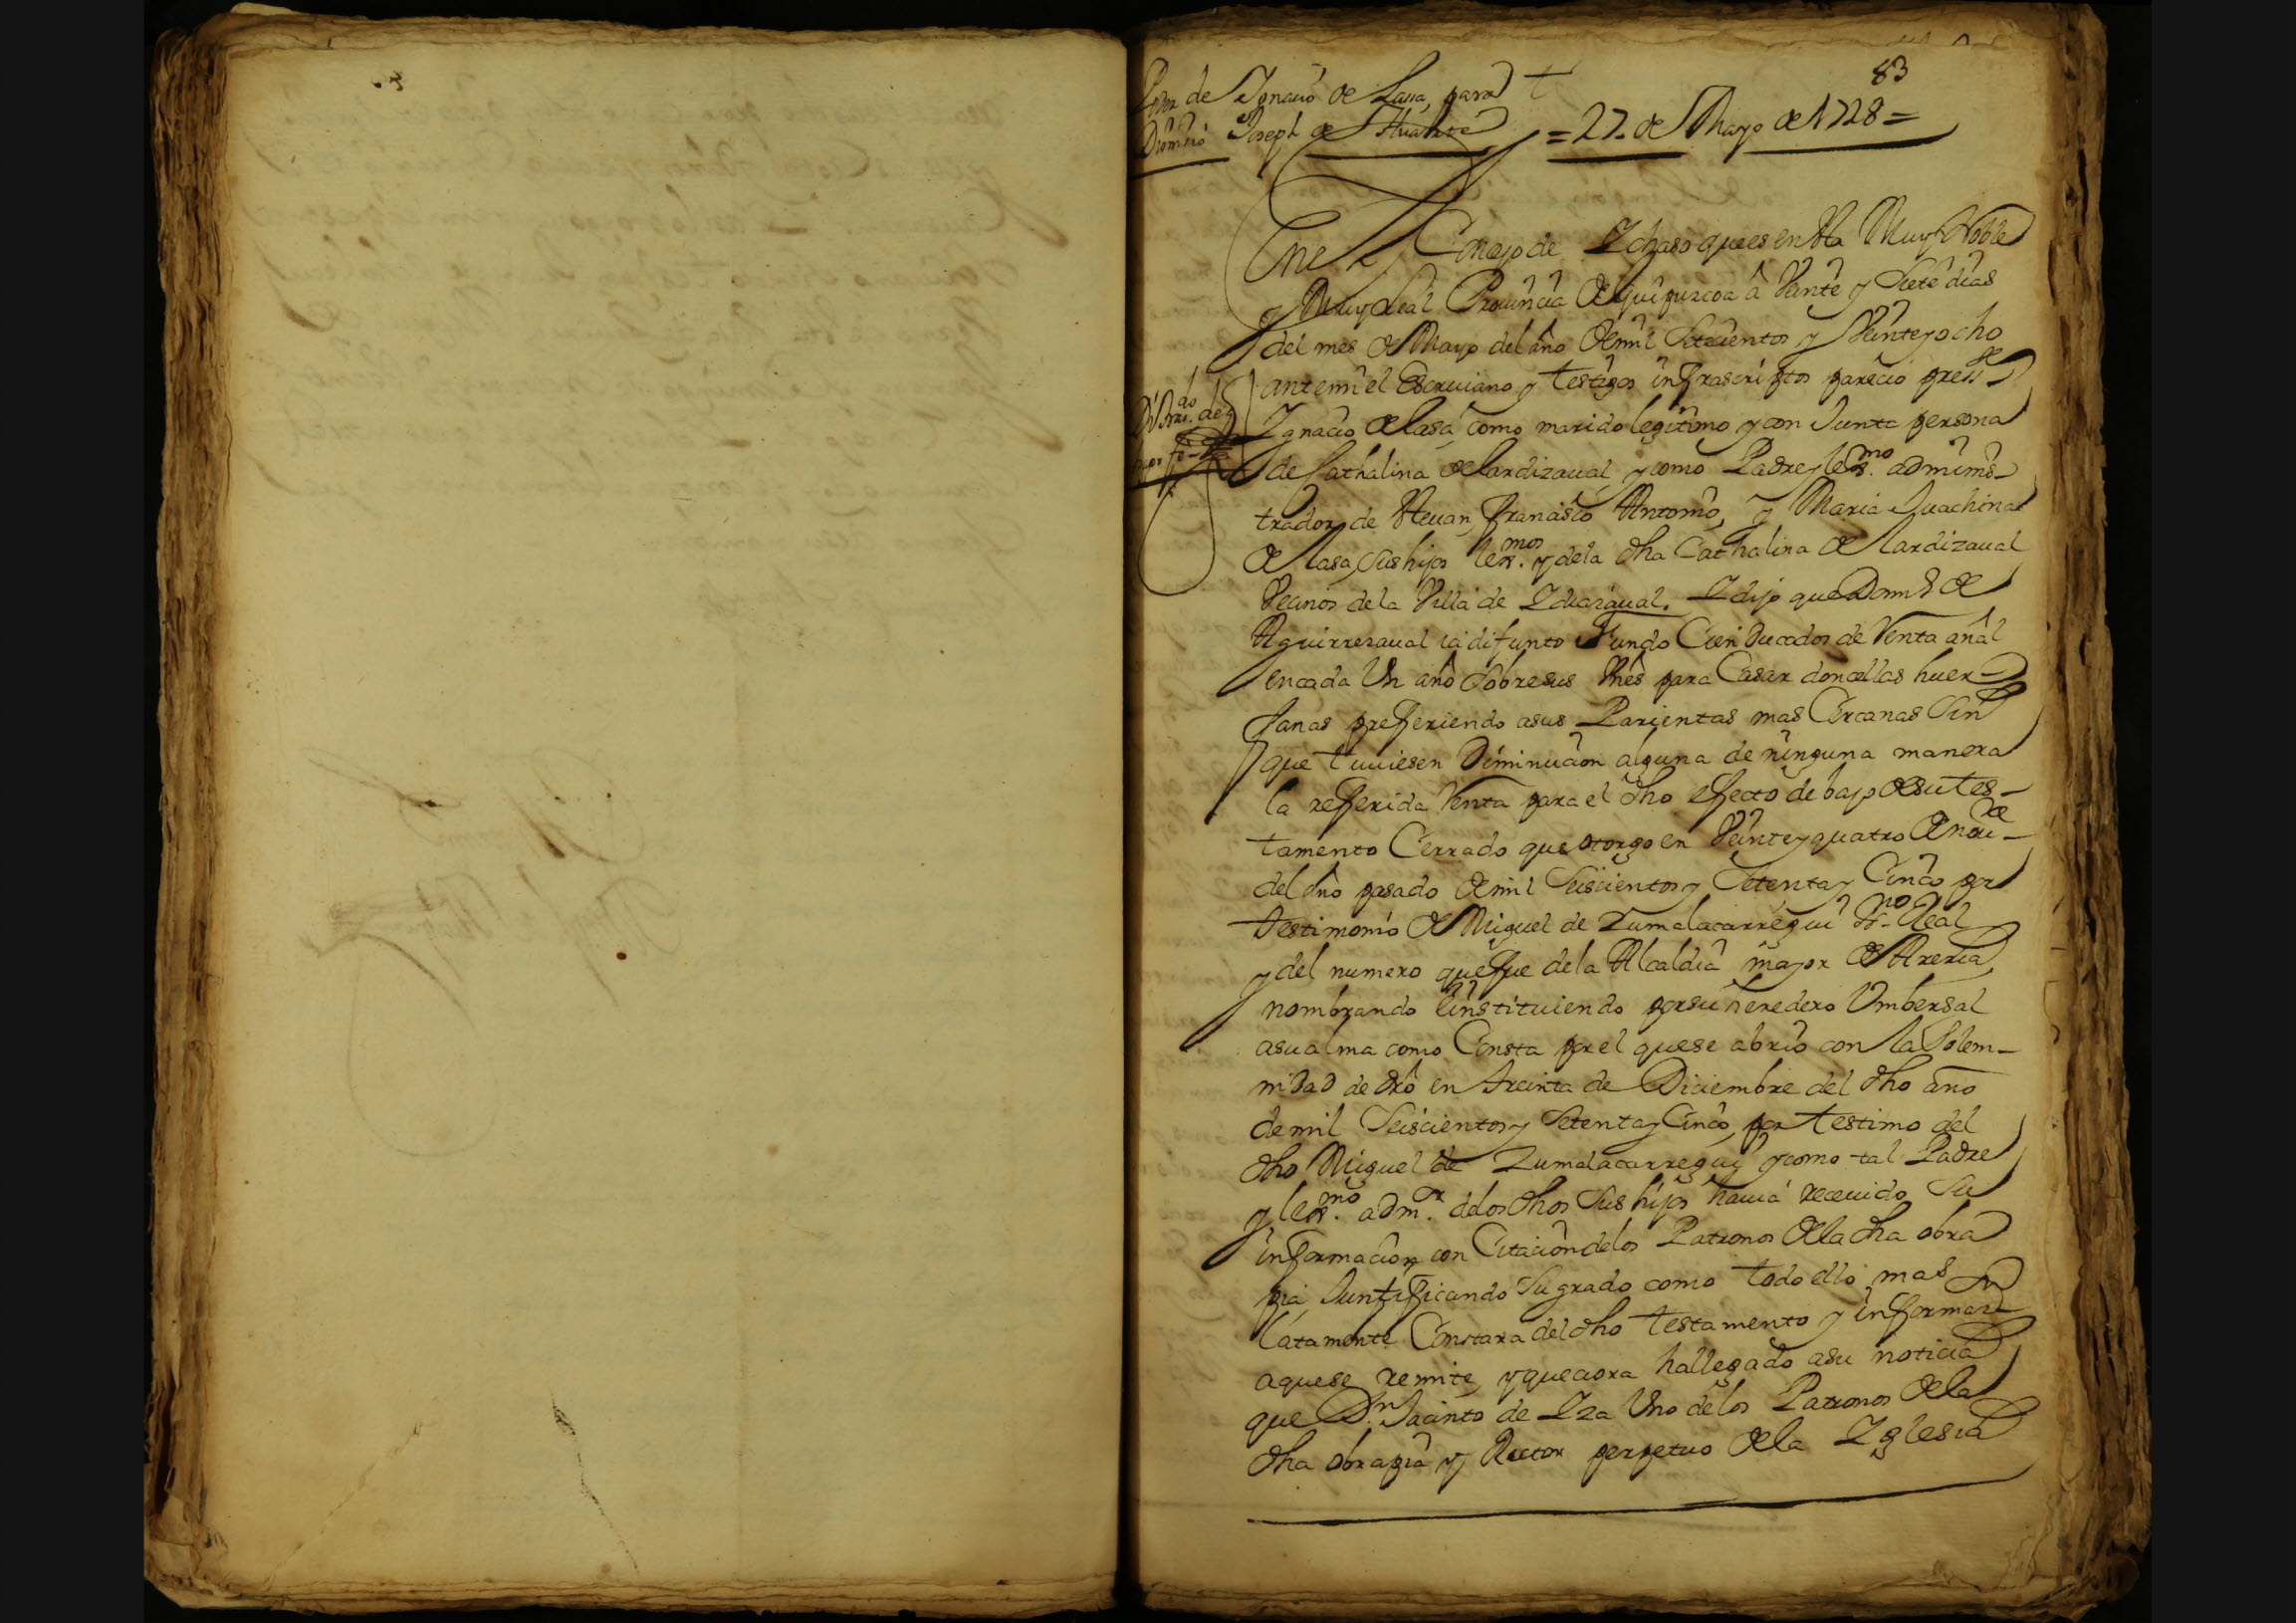 83
Poder de Ygnacio de Lasa, para
Joseph de
= 27. de Mayo de 1728 =
En el Concejo de Ychaso que es en esta Muy Noble
y Muy Leal Prouincia de Guipuzcoa â Veinte y Siete dias
del mes de Mayo del año de mil Setecientos y Veinte y ocho
ante mi el Escriuano y testigos infrascriptos parecio press.te
Ygnacio de lasa como marido legitimo y con Junta persona
de Cathalina de lardizaual y como Padre y lex.mo adminis-
trador de Steuan, Francisco Antonio, y Maria Juachina
de lasa, sus hijos lex.mos y de la dha Cathalina de lardizaual
Vecinos de la Villa de Ydiazaual. Y dijo que Dom.o de
Aguirrezaual ia difunto Fundo Cien Ducados de Renta anal
en cada Un año sobre sus Vnês para Casar doncellas huer-
fanas prefferiendo a sus Parientas mas Cercanas sin
que tuuiesen Diminucion alguna de ninguna manera
la refferida Renta para el dho effecto debajo de su tes-
tamento Cerrado que otorgo en Veinte y quatro de nou.re
del año pasado de mil Seiscientos y Setenta y Cinco por
testimonio de Miguel de Zumalacarregui ss.no Real
y del numero que fue de la Alcaldia mayor de Areria
nombrando e instituiendo por su heredero Vmbersal
a su alma como Consta por el que se abrio con la Solem-
nidad de dro en treinta de Diciembre del dho año
de mil Seiscientos y Setenta y Cinco, por testimo del
dho Miguel de Zumalacarregui y como tal Padre
y lex.mo adm.or de los dhos sus hijos hauia receuido su
informacion con Citacion de los Patronos de la dha obra
pia Justifficando su grado como todo ello mas
latamente Constara del dho testamento y informaz.n
a que se remite, y que aora ha llegado a su noticia
que D.n Jacinto de Yza Uno de los Patronos de la
dha obra pia y Rector perpetuo de la Yglesia